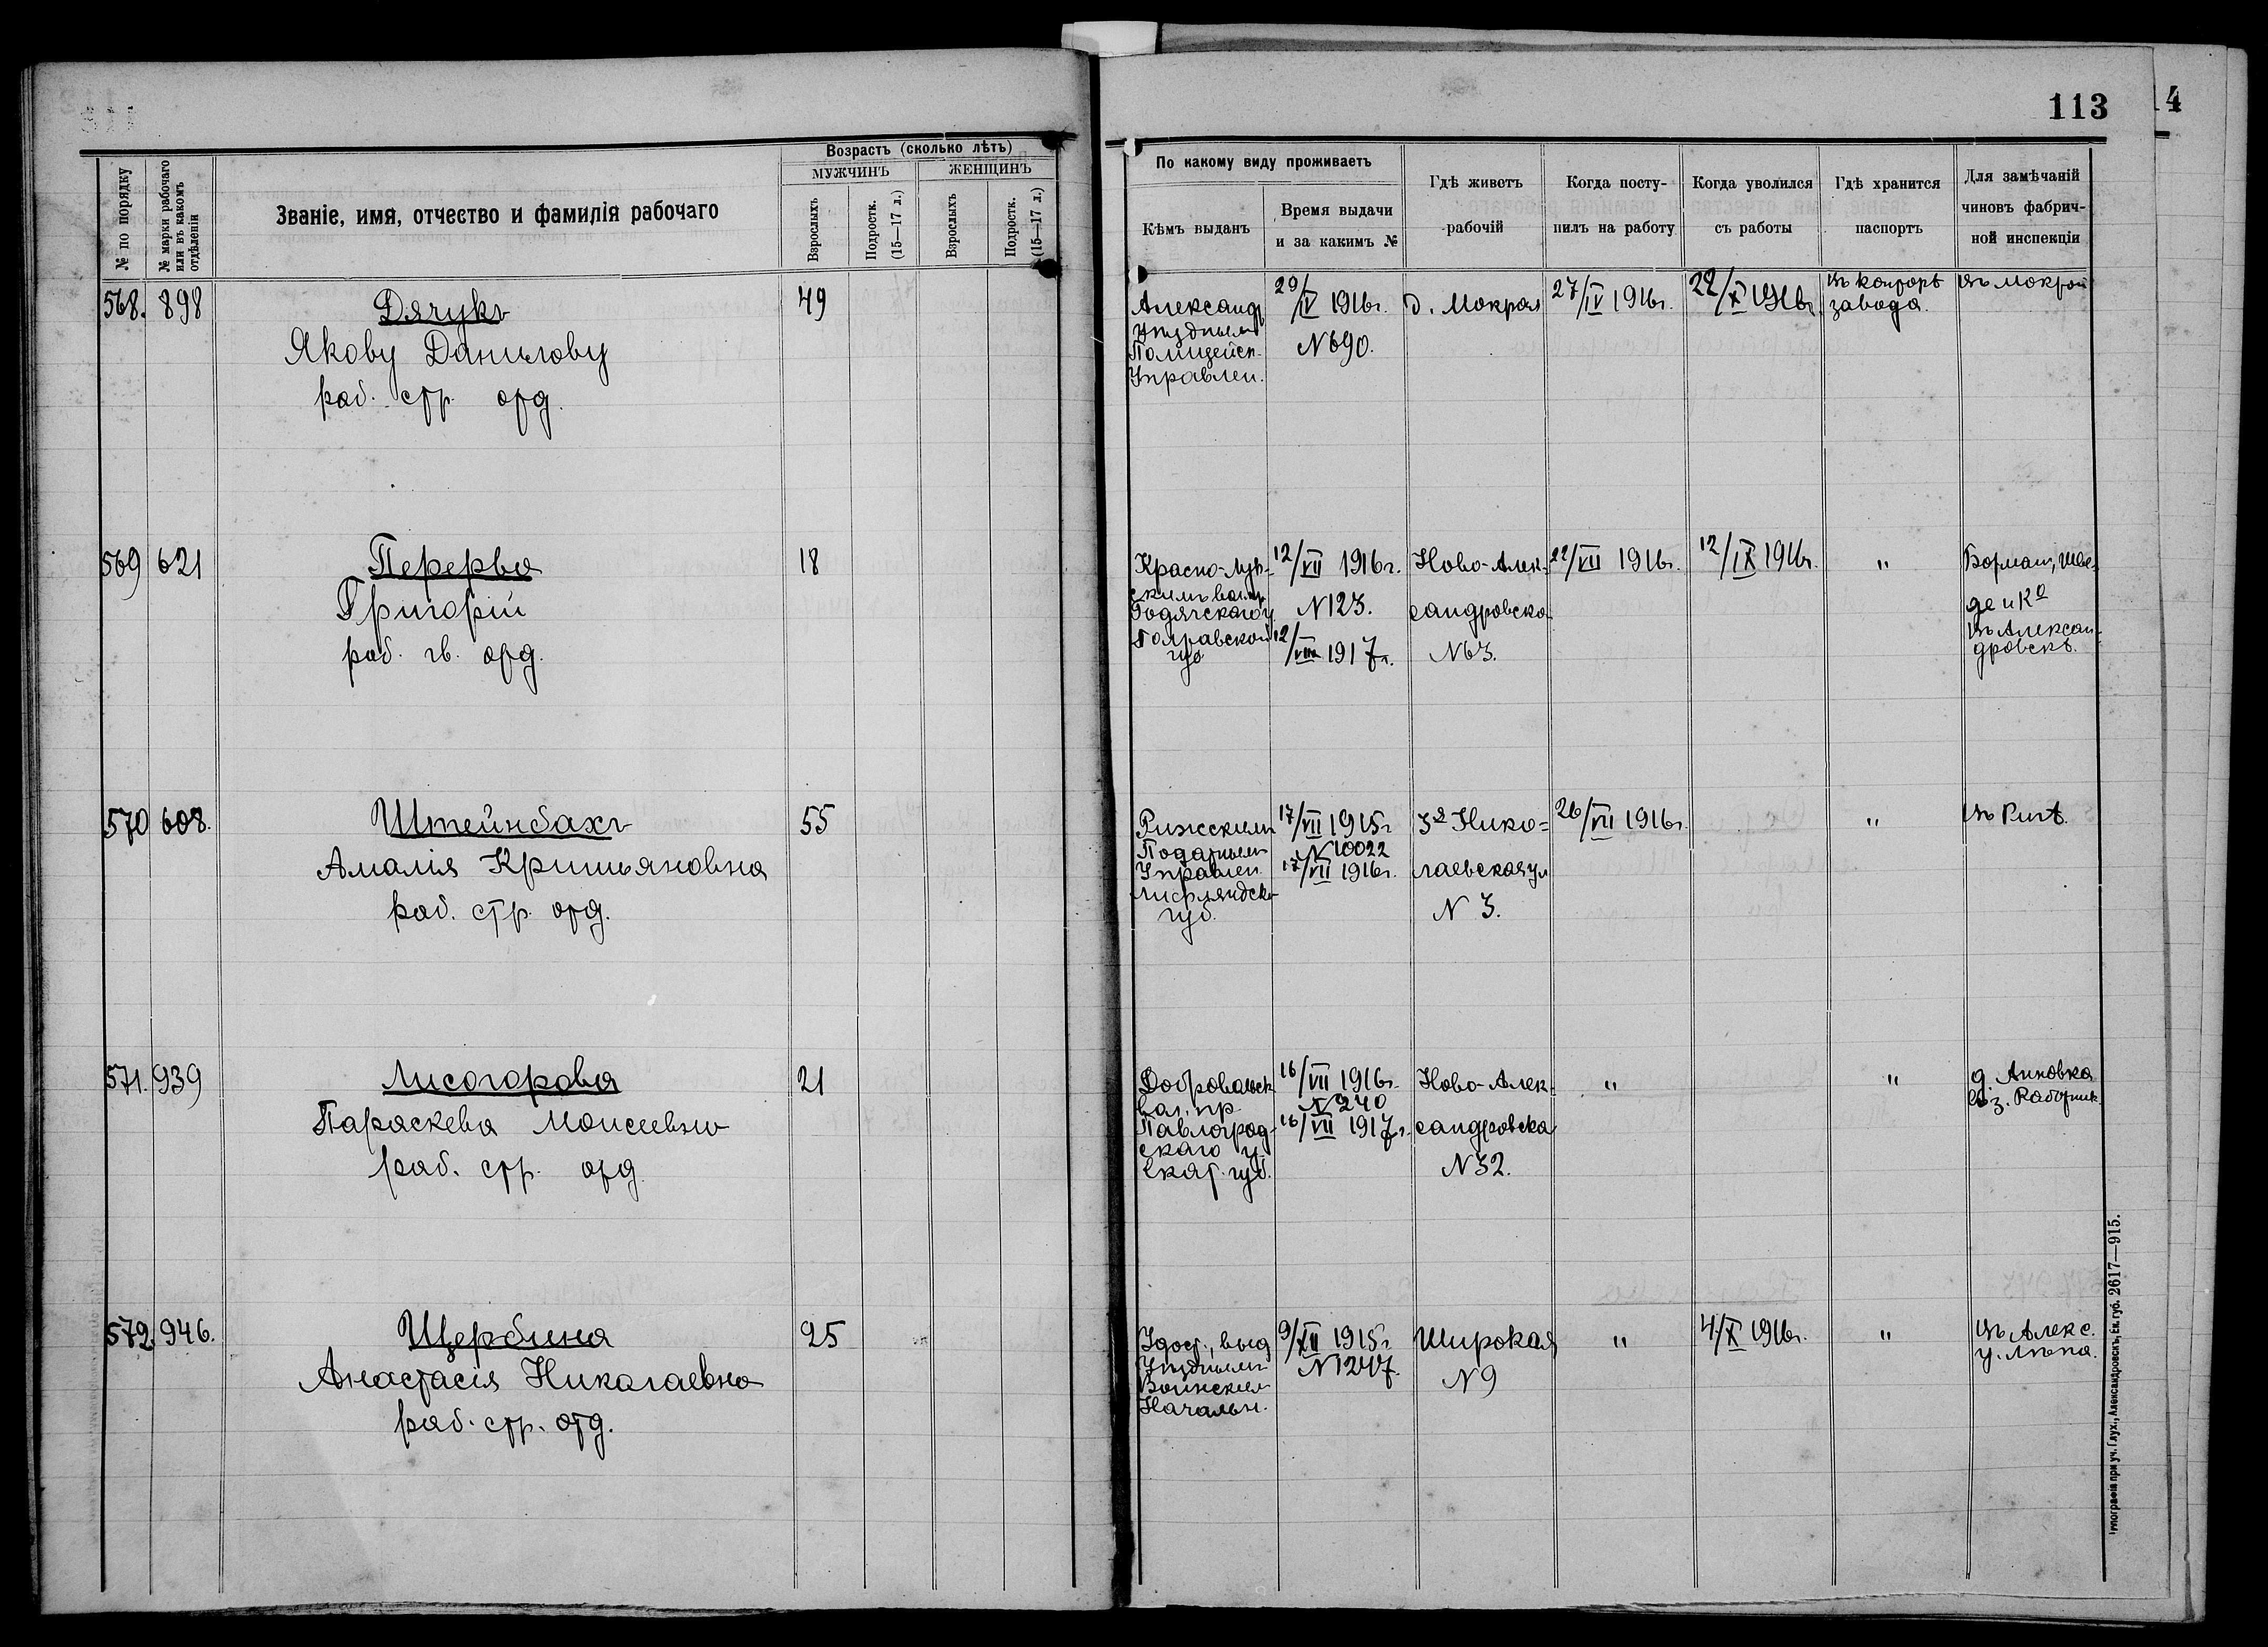 113
4
№ по порядку
№ марки рабочаго
или въ какомъ
отдѣленіи
Званіе, имя, отчество и фамилія рабочаго
Возрастъ (сколько лѣтъ)
МУЖЧИНЪ
ЖЕНЩИНЪ
Взрослыхъ
Подростк.
(15—17 л.)
Взрослыхъ
Подростк.
(15—17 л.)
По какому виду проживаетъ
Кѣмъ выданъ
Время выдачи
и за какимъ №
Гдѣ живетъ
рабочій
Когда посту-
пилъ на работу
Когда уволился
съ работы
Гдѣ хранится
паспортъ
Для замѣчаній
чиновъ фабрич-
ной инспекціи
568. 898
Дячукъ
Якову Данилову
раб. стр. отд.
49
Александр
Уѣзднымъ
Полицейск.
Управлен.
29/IV 1916г.
N 690.
д. Мокрая
27/IV 1916г.
22/X 1916г.
Въ конторѣ
завода.
Въ Мокрой
569 621
Перерва
Григорій
раб. гв. отд.
18
Красно-Лу
скимъ вол. пр.
Годячскаго у.
Полтавской
губ.
12/VII 1916г.
N 123.
12/VIII 1917г.
Ново-Алек-
сандровска
N 63.
22/VII 1916г.
12/IX 1916г.
"
Борман, Шве-
де и Ко
Въ Алексан-
дровскѣ.
570 608.
Штейнбахъ
Амалія Кришьяновна
раб. стр. отд.
55
Рижскимъ
Податнымъ
Управлен.
Лифляндско
губ.
17/VII 1915г
N 10022
17/VII 1916г.
3я Нико=
лаевская ул
N 3.
26/VII 1916г.
"
Въ Ригѣ.
571. 939
Лисогорова
Параскева Моисеевна
раб. стр. отд.
21
Добровольск
вол. пр.
Павлоград-
скаго у.
Екат. губ.
16/VII 1916г.
N 240
16/VII 1917г.
Ново-Алек-
сандровска
N 32.
"
"
д. Анновка
572. 946.
Щербина
Анастасія Николаевна
раб. стр. отд.
25
Удост., выд
Уѣзднымъ
Воинскимъ
Начальн.
9/XII 1915г
N 1247.
Широкая
N 9
"
4/X 1916г.
"
Въ Алекс.
Типографія при уч. Глух., Александровскъ, Ек. губ. 2617—915.